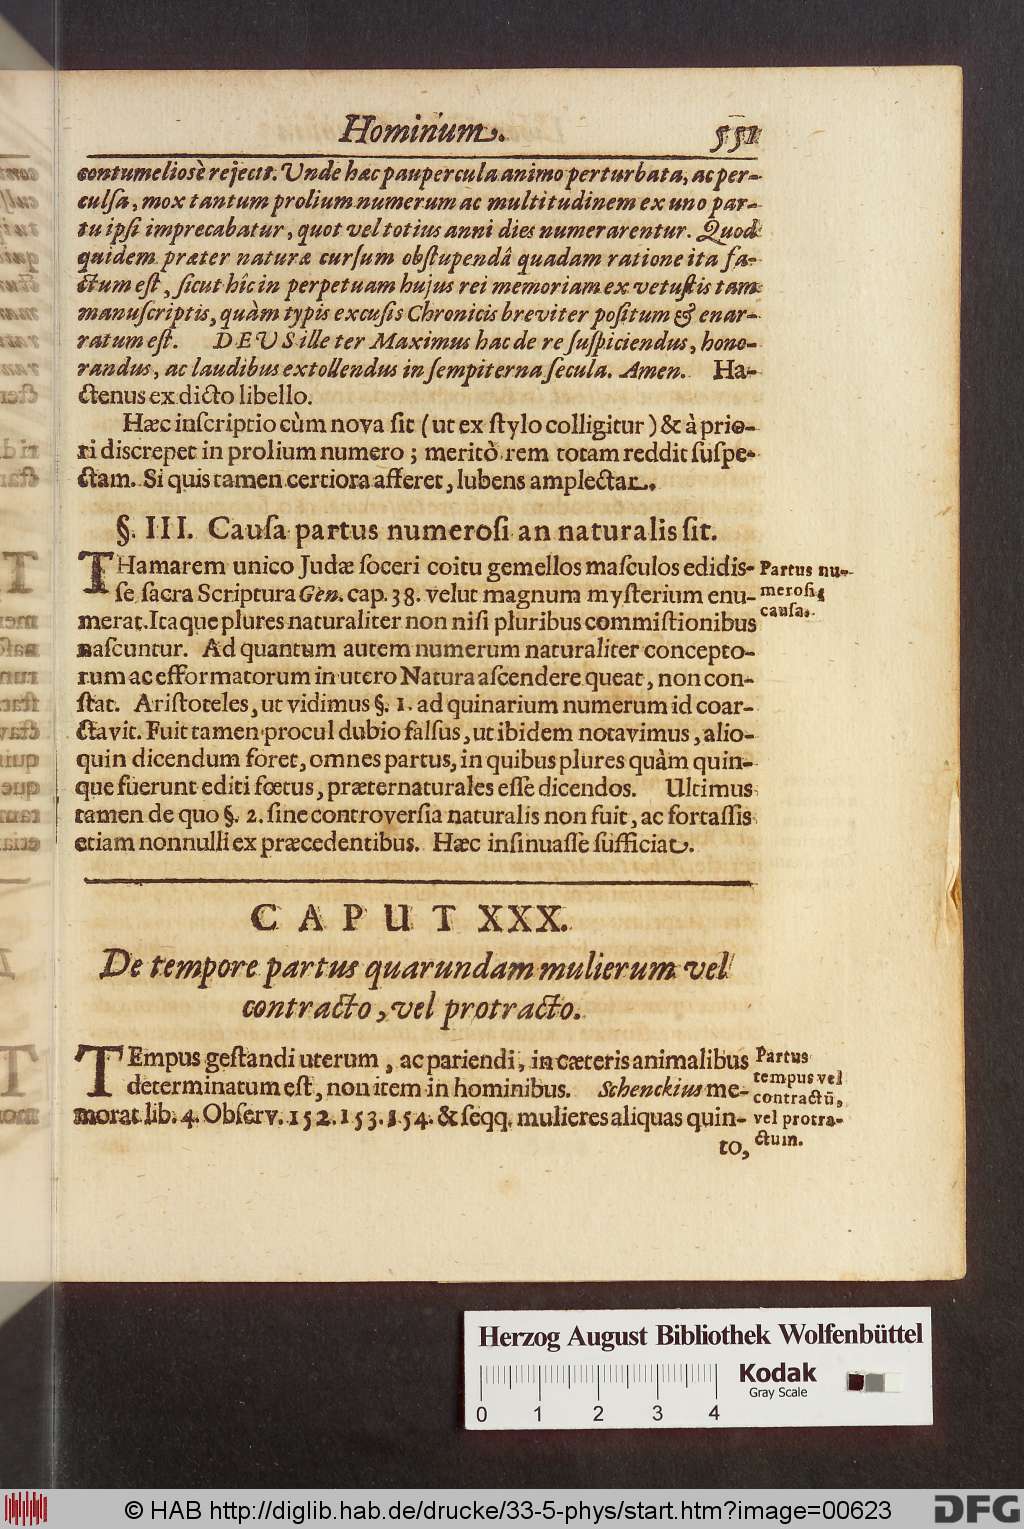 Hominum.
551
contumeliosè rejecit. Unde hæc paupercula animo perturbata, ac per-
culsa, mox tantum prolium numerum ac multitudinem ex uno par-
tu ipsi imprecabatur, quot vel totius anni dies numerarentur. Quod
quidem præter naturæ cursum obstupendâ quadam ratione ita fa-
ctum est, sicut hîc in perpetuam hujus rei memoriam ex vetustis tam
manuscriptis, quàm typis excusis Chronicis breviter positum & enar-
ratum est. DEUS ille ter Maximus hac de re suspiciendus, hono-
randus, ac laudibus extollendus in sempiterna secula. Amen. Ha-
ctenus ex dicto libello.
Hæc inscriptio cùm nova sit (ut ex stylo colligitur) & à prio-
ri discrepet in prolium numero; meritò rem totam reddit suspe-
ctam. Si quis tamen certiora afferet, lubens amplectar.
§. III. Causa partus numerosi an naturalis sit.
THamarem unico Judæ soceri coitu gemellos masculos edidis-
se sacra Scriptura Gen. cap. 38. velut magnum mysterium enu-
merat. Itaque plures naturaliter non nisi pluribus commistionibus
nascuntur. Ad quantum autem numerum naturaliter concepto-
rum ac efformatorum in utero Natura ascendere queat, non con-
stat. Aristoteles, ut vidimus §. 1. ad quinarium numerum id coar-
ctavit. Fuit tamen procul dubio falsus, ut ibidem notavimus, alio-
quin dicendum foret, omnes partus, in quibus plures quàm quin-
que fuerunt editi fœtus, præternaturales esse dicendos. Ultimus
tamen de quo §. 2. sine controversia naturalis non fuit, ac fortassis
etiam nonnulli ex præcedentibus. Hæc insinuasse sufficiat.
Partus nu-
merosi
causa.
CAPUT XXX.
De tempore partus quarundam mulierum vel
contracto, vel protracto.
TEmpus gestandi uterum, ac pariendi, in cæteris animalibus
determinatum est, non item in hominibus. Schenckius me-
morat lib. 4. Observ. 152. 153. 154. & seqq. mulieres aliquas quin-
to,
Partus
tempus vel
contractū,
vel protra-
ctum.
Herzog August Bibliothek Wolfenbüttel
Kodak
Gray Scale
0 1 2 3 4
© HAB http://diglib.hab.de/drucke/33-5-phys/start.htm?image=00623
DFG